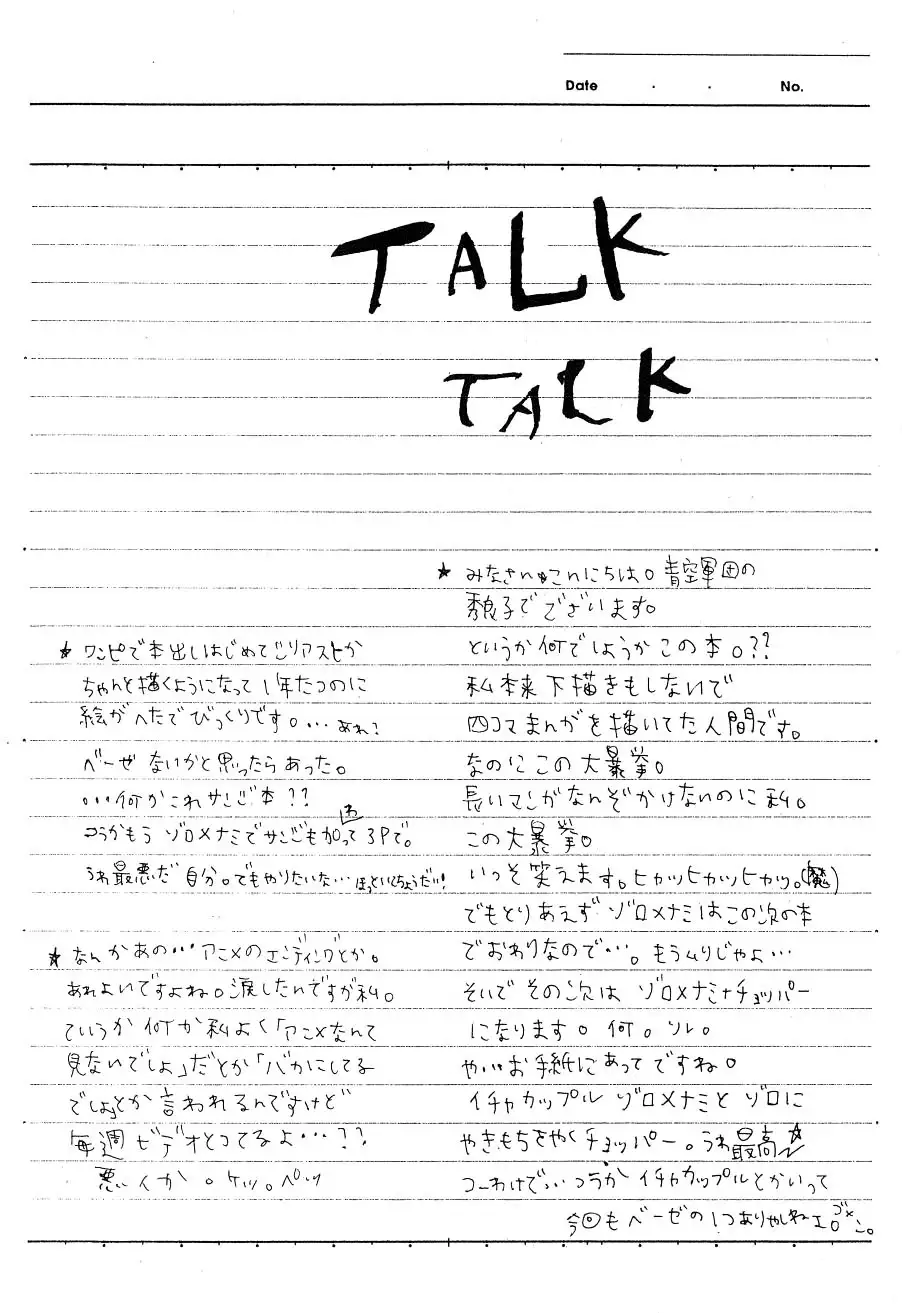 Date . . No.
TALK
TALK
★ みなさんこんにちは。青空軍団の
子でございます。
というか何でしょうかこの本。??
私本来下描きもしないで
四コマまんがを描いてた人間です。
なのにこの大暴挙。
長いマンガなんぞかけないのに私。
この大暴挙。
いっそ笑えます。ヒカッヒカッヒカッ。(魔)
でもとりあえずゾロ×ナミはこの次の本
でおわりなので…。もうムリじゃよ…
そいでその次はゾロ×ナミ+チョッパー
になります。何。ソレ。
や…お手紙にあってですね。
イチャカップルゾロ×ナミとゾロに
やきもちをやくチョッパー。うわ最高☆
つーわけで…つうかイチャカップルとかいって
今回もベーゼの1つありゃしねェ。ゴメン。
★ ワンピで本出しはじめて
ちゃんと描くようになって1年たつのに
絵がへたでびっくりです。…あれ?
ベーゼないかと思ったらあった。
…何かこれサンジ本??
つうかもうゾロ×ナミでサンジも加わって3Pで。
うわ最悪だ自分。でもやりたいな…ほっといてちょうだい!
★ なんかあの…アニメのエンディングとか。
あれよいですよね。涙したんですが私。
ていうか何か私よく「アニメなんて
見ないでしょ」だとか「バカにしてる
でしょ」とか言われるんですけど
毎週ビデオとってるよ…??
悪いか。ケッ。ペッ